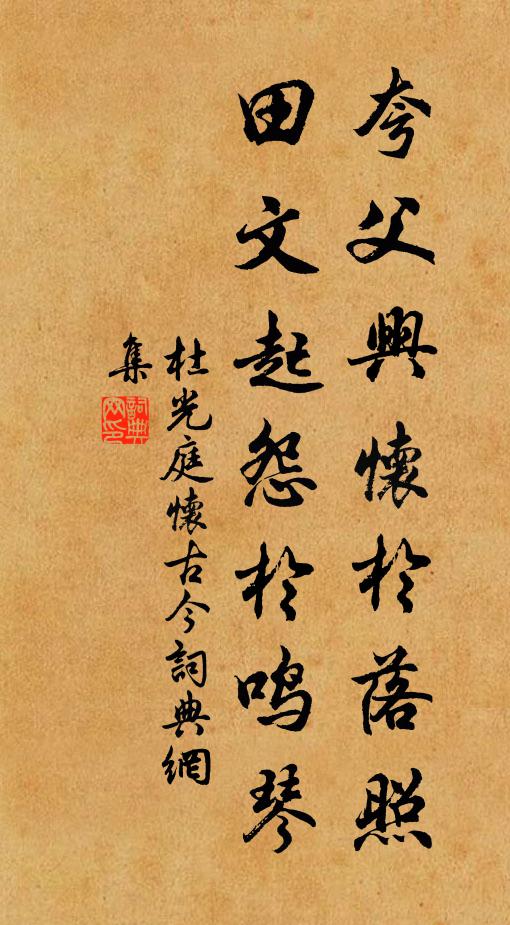 夸父興懷於落照
田文起怨於鳴琴
杜光庭懷古今詞典網
集
詞典
网印